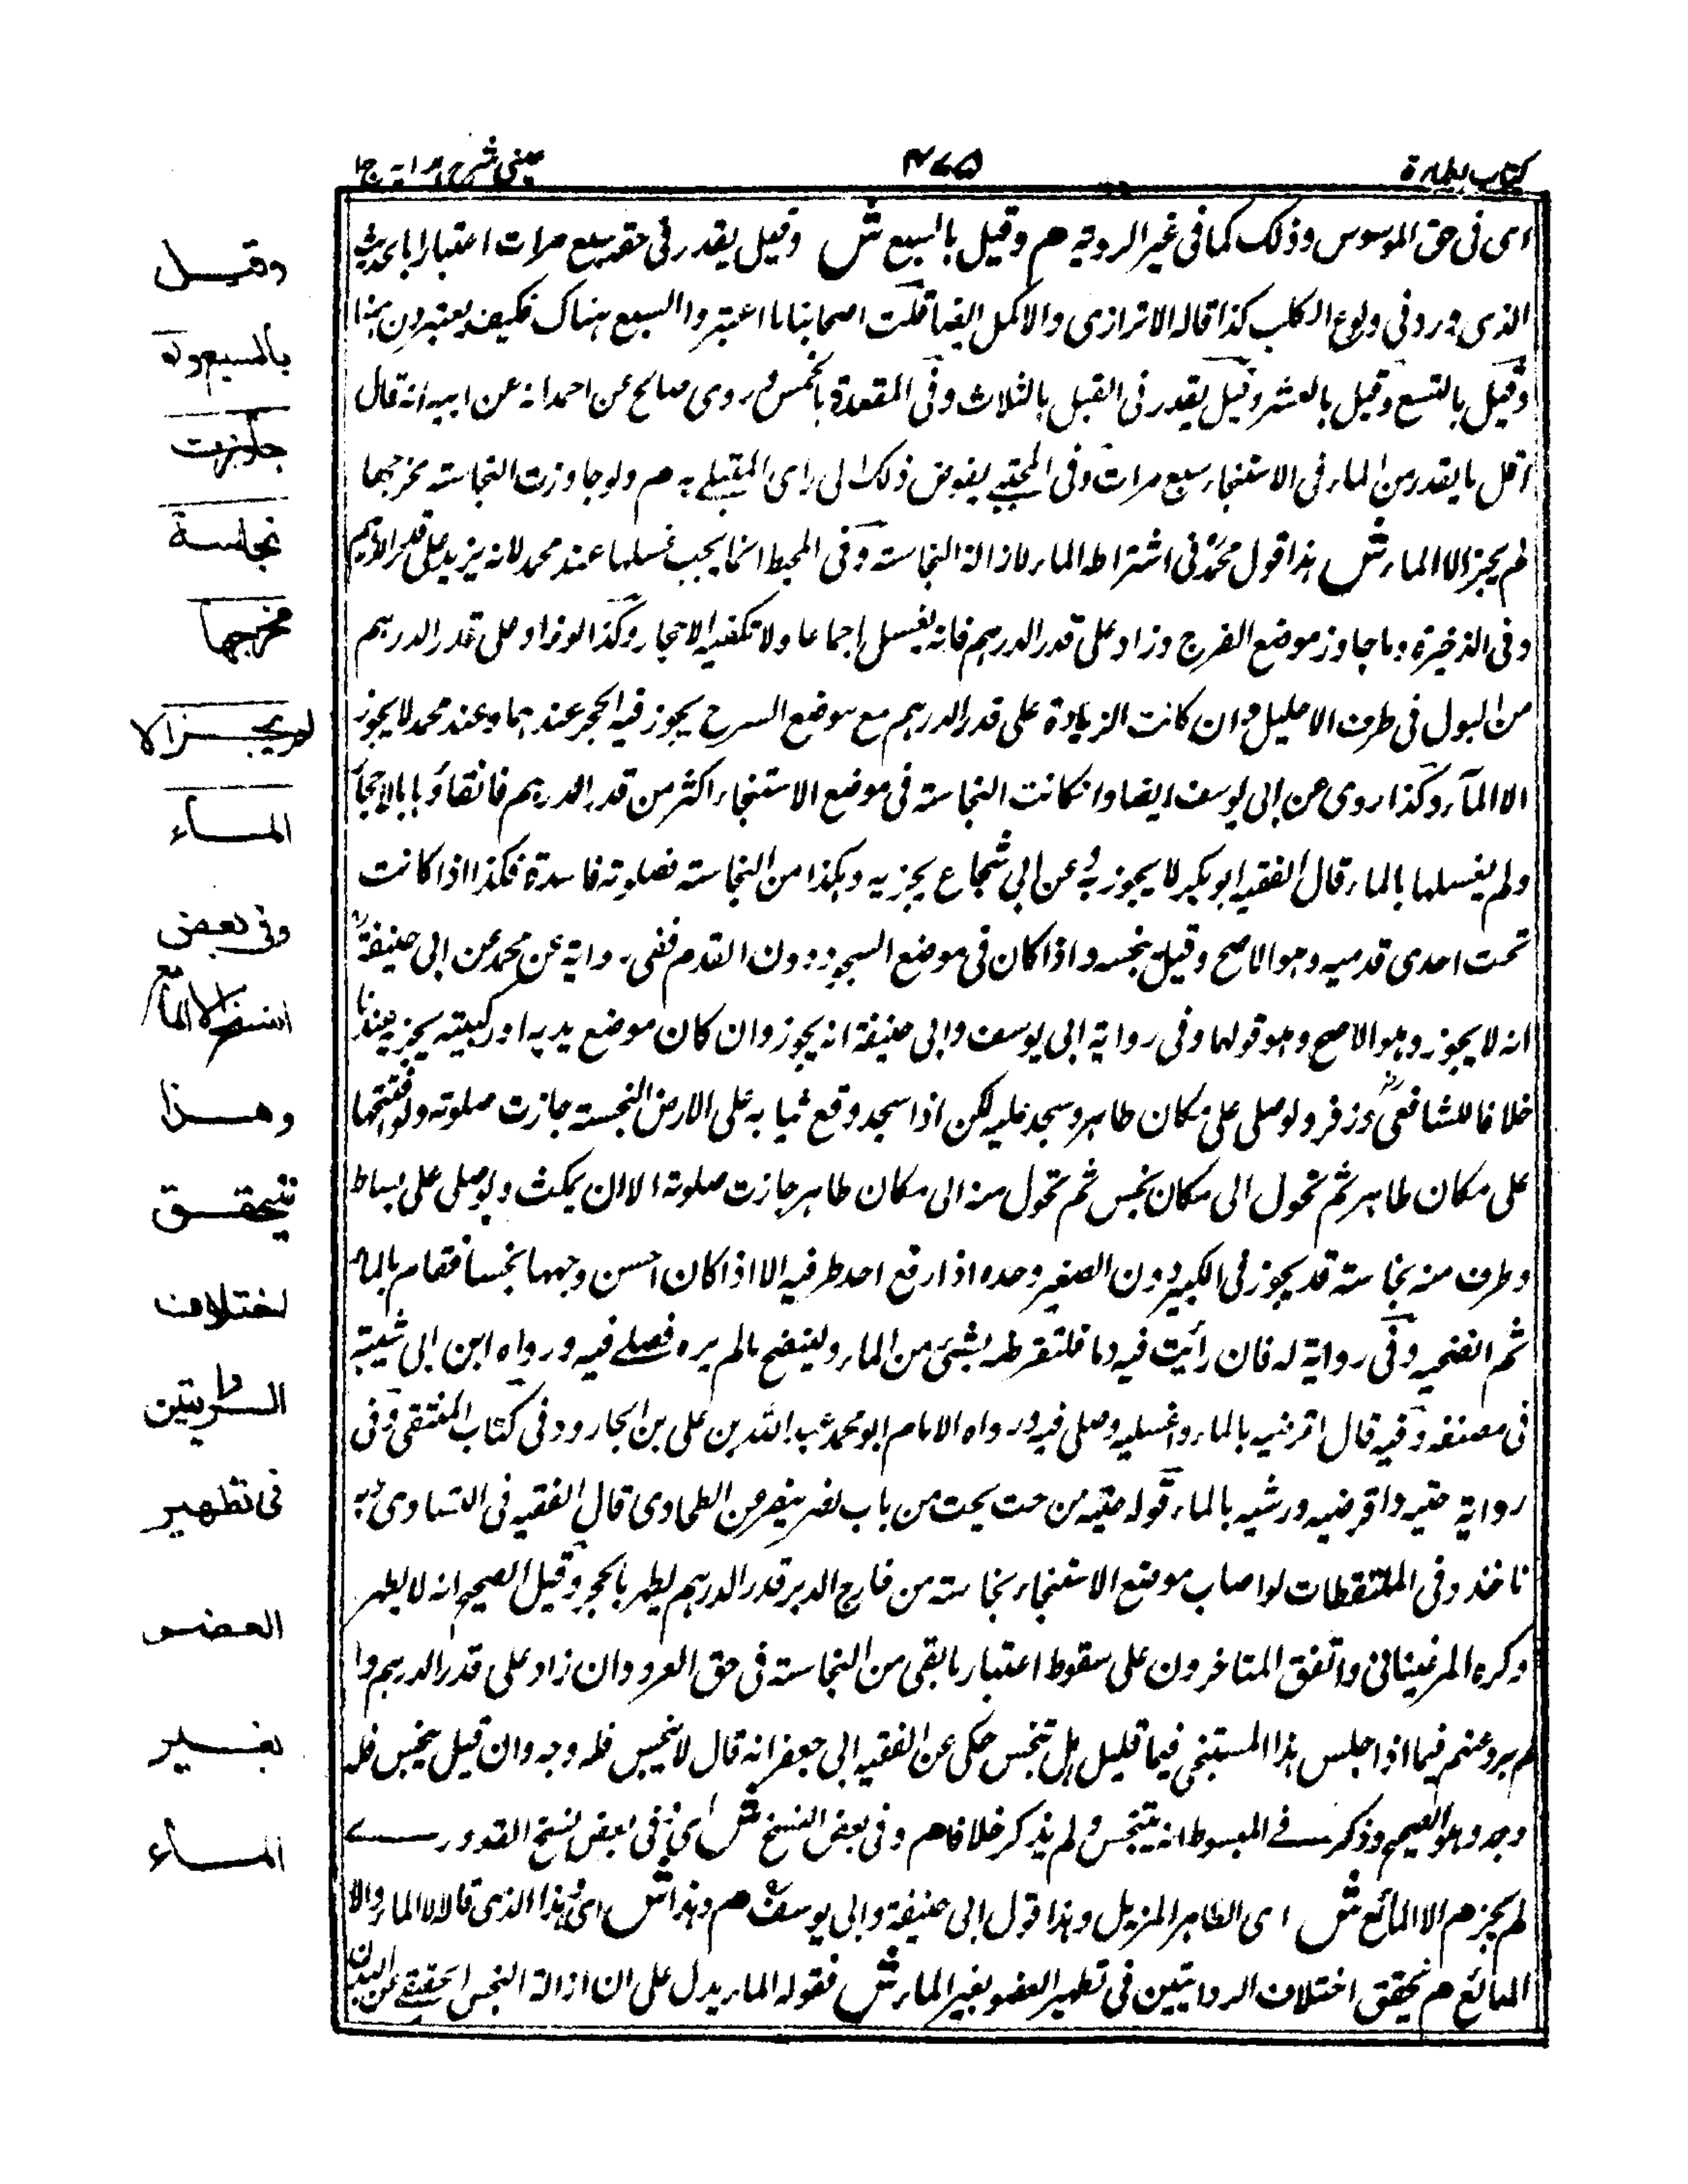 كتاب الطهارة
٤٦٥
عينى شرح هداية ج ١
اى فى حق الموسوس وذلك كما فى غير المروية هم وقيل بالسبع ش وقيل يقدر فى حقه بسبع مرات اعتبارا بالحديث
الذى ورد فى ولوغ الكلب كذا قاله الاترازى والاكمل ايضا قلت اصحابنا ما اعتبروا السبع هناك فكيف يعتبرون هنا
وقيل بالتسع وقيل بالعشر وقيل يقدر فى القبل بالثلاث وفى المقعدة بالخمس وروى صالح عن احمد انه عن ابيه انه قال
اقل ما يقدر من الماء فى الاستنجاء سبع مرات وفى المجتبى يفوض ذلك الى راى المبتلى به هم ولو جاوزت النجاسة مخرجها
لم يجز الا الماء ش هذا قول محمد فى اشتراط الماء لازالة النجاسة وفى المحيط انما يجب غسلها عند محمد لانه يزيد على قدر الدرهم
وفى الذخيرة وما جاوز موضع الفرج وزاد على قدر الدرهم فانه يغسل اجماعا ولا تكفيه الاحجار وكذا لو زاد على قدر الدرهم
من البول فى طرف الاحليل وان كانت الزيادة على قدر الدرهم مع موضع السرج يجوز فيه الحجر عندهما وعند محمد لا يجوز
الا الماء وكذا روى عن ابى يوسف ايضا وان كانت النجاسة فى موضع الاستنجاء اكثر من قدر الدرهم فانقاؤها بالاحجار
ولم يغسلها بالماء قال الفقيه ابو بكر لا يجوز به وعن ابى شجاع يجزيه وهكذا من النجاسة فصلوته فاسدة فكذا اذا كانت
تحت احدى قدميه وهو الاصح وقيل بخسه واذا كان فى موضع السجود دون القدم ففى رواية عن محمد عن ابى حنيفة
انه لا يجوز وهو الاصح وهو قولهما وفى رواية ابى يوسف وابى حنيفة انه يجوز وان كان موضع يديه او ركبتيه يجزيه عندنا
خلافا للشافعى وزفر ولو صلى على مكان طاهر وسجد عليه لكن اذا سجد وقع ثيابه على الارض النجسة جازت صلوته ولو افتتحها
على مكان طاهر ثم تحول الى مكان نجس ثم تحول منه الى مكان طاهر جازت صلوته الا ان يمكث ولو صلى على بساط
وطرف منه نجاسة قد يجوز فى الكبير دون الصغير وحده اذا رفع احد طرفيه الا اذا كان احسن وجهها نجسا فقام بالماء
ثم انضحيه وفى رواية له فان رأيت فيه دما فلتقرطه بشئ من الماء ولينضح مالم يره فصلى فيه ورواه ابن ابى شيبة
فى مصنفه وفيه قال اقرضيه بالماء واغسليه وصلى فيه ورواه الامام ابو محمد عبد الله بن على بن الجارود فى كتاب المنتقى وفى
رواية حتيه واقرضيه ورشيه بالماء قوله حتيه من حت يحت من باب نصر ينصر عن الطحاوى قال الفقيه فى التساوى به
ناخذ وفى الملتقطات لو اصاب موضع الاستنجاء نجاسة من خارج الدبر قدر الدرهم يطهر بالحجر وقيل الصحيح انه لا يطهر
ذكره المرغينانى واتفق المتاخرون على سقوط اعتبار ما بقى من النجاسة فى حق العرو وان زاد على قدر الدرهم وا
لم يرو عنهم فيما اذا جلس هذا المستنجى فيما قليل هل تنجس حكى عن الفقيه ابى جعفر انه قال لا ينجس فله وجه وان قيل ينجس فله
وجه وهو الصحيح وذكر فى المبسوط انه يتنجس ولم يذكر خلافا هم وفى بعض النسخ ش اى فى بعض نسخ القدورى
لم يجز هم الا المائع ش اى الطاهر المزيل وهذا قول ابى حنيفة وابى يوسف هم وهذا ش اى هذا الذى قال الا الماء والا
المائع هم يحقق اختلاف الروايتين فى تطهير العضو بغير الماء ش فقوله الماء يدل على ان ازالة النجس الحقيقى عن البدن
وقيل
بالسبع ولو
جاوزت
نجاسة
مخرجها
لم يجز الا
الماء
وفى بعض
النسخ الا المائع
وهذا
يتحقق
اختلاف
الروايتين
فى تطهير
العضو
بغير
الماء